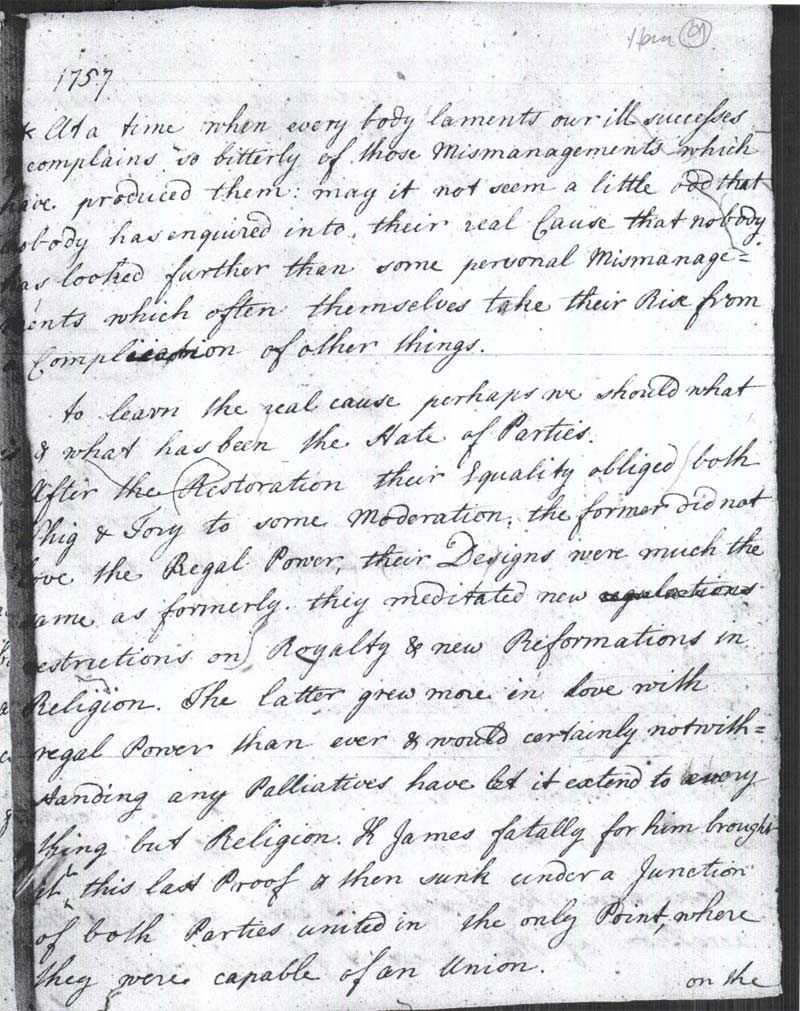 1757
At a time when every body laments our ill successes
complains so bitterly of those Mismanagements which
have produced them: may it not seem a little odd that
nobody has enquired into, their real Cause that nobody
has looked further than some personal Mismanage=
ments which often themselves take their Rise from
a Complication of other things.
to learn the real cause perhaps we should what
is & what has been the State of Parties.
After the Restoration their Equality obliged both
Whig & Tory to some Moderation. the former did not
love the Regal Power, their Designs were much the
same as formerly. they meditated new regulations
restrictions on Royalty & new Reformations in
Religion. The latter grew more in love with
regal Power than ever & would certainly notwith=
standing any Palliatives have let it extend to every
thing but Religion. K James fatally for him brought
it this last Proof & then sunk under a Junction
of both Parties united in the only Point, where
they were capable of an Union.
on the